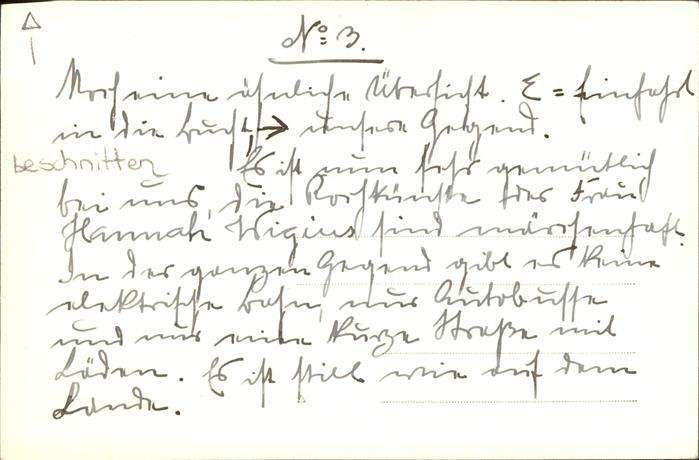 No. 3.
Noch eine ähnliche Übersicht. E = Einfahrt
in die Bucht, → unsere Gegend.
beschnitten
Es ist nun sehr gemütlich
bei uns, die Kochkünste der Frau
Hannah Wigius sind märchenhaft.
In der ganzen Gegend gibt es keine
elektrische Bahn, nur Autobusse
und nur eine kurze Straße mit
Läden. Es ist still wie auf dem
Lande.